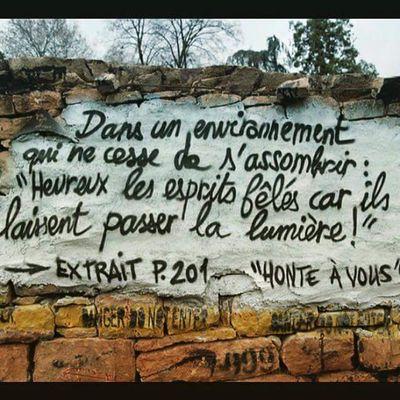 Dans un environnement
qui ne cesse de s'assombrir :
"Heureux les esprits fêlés car ils
laissent passer la lumière !"
→ EXTRAIT P. 201 "HONTE À VOUS"
DANGER DO NOT ENTER
1999